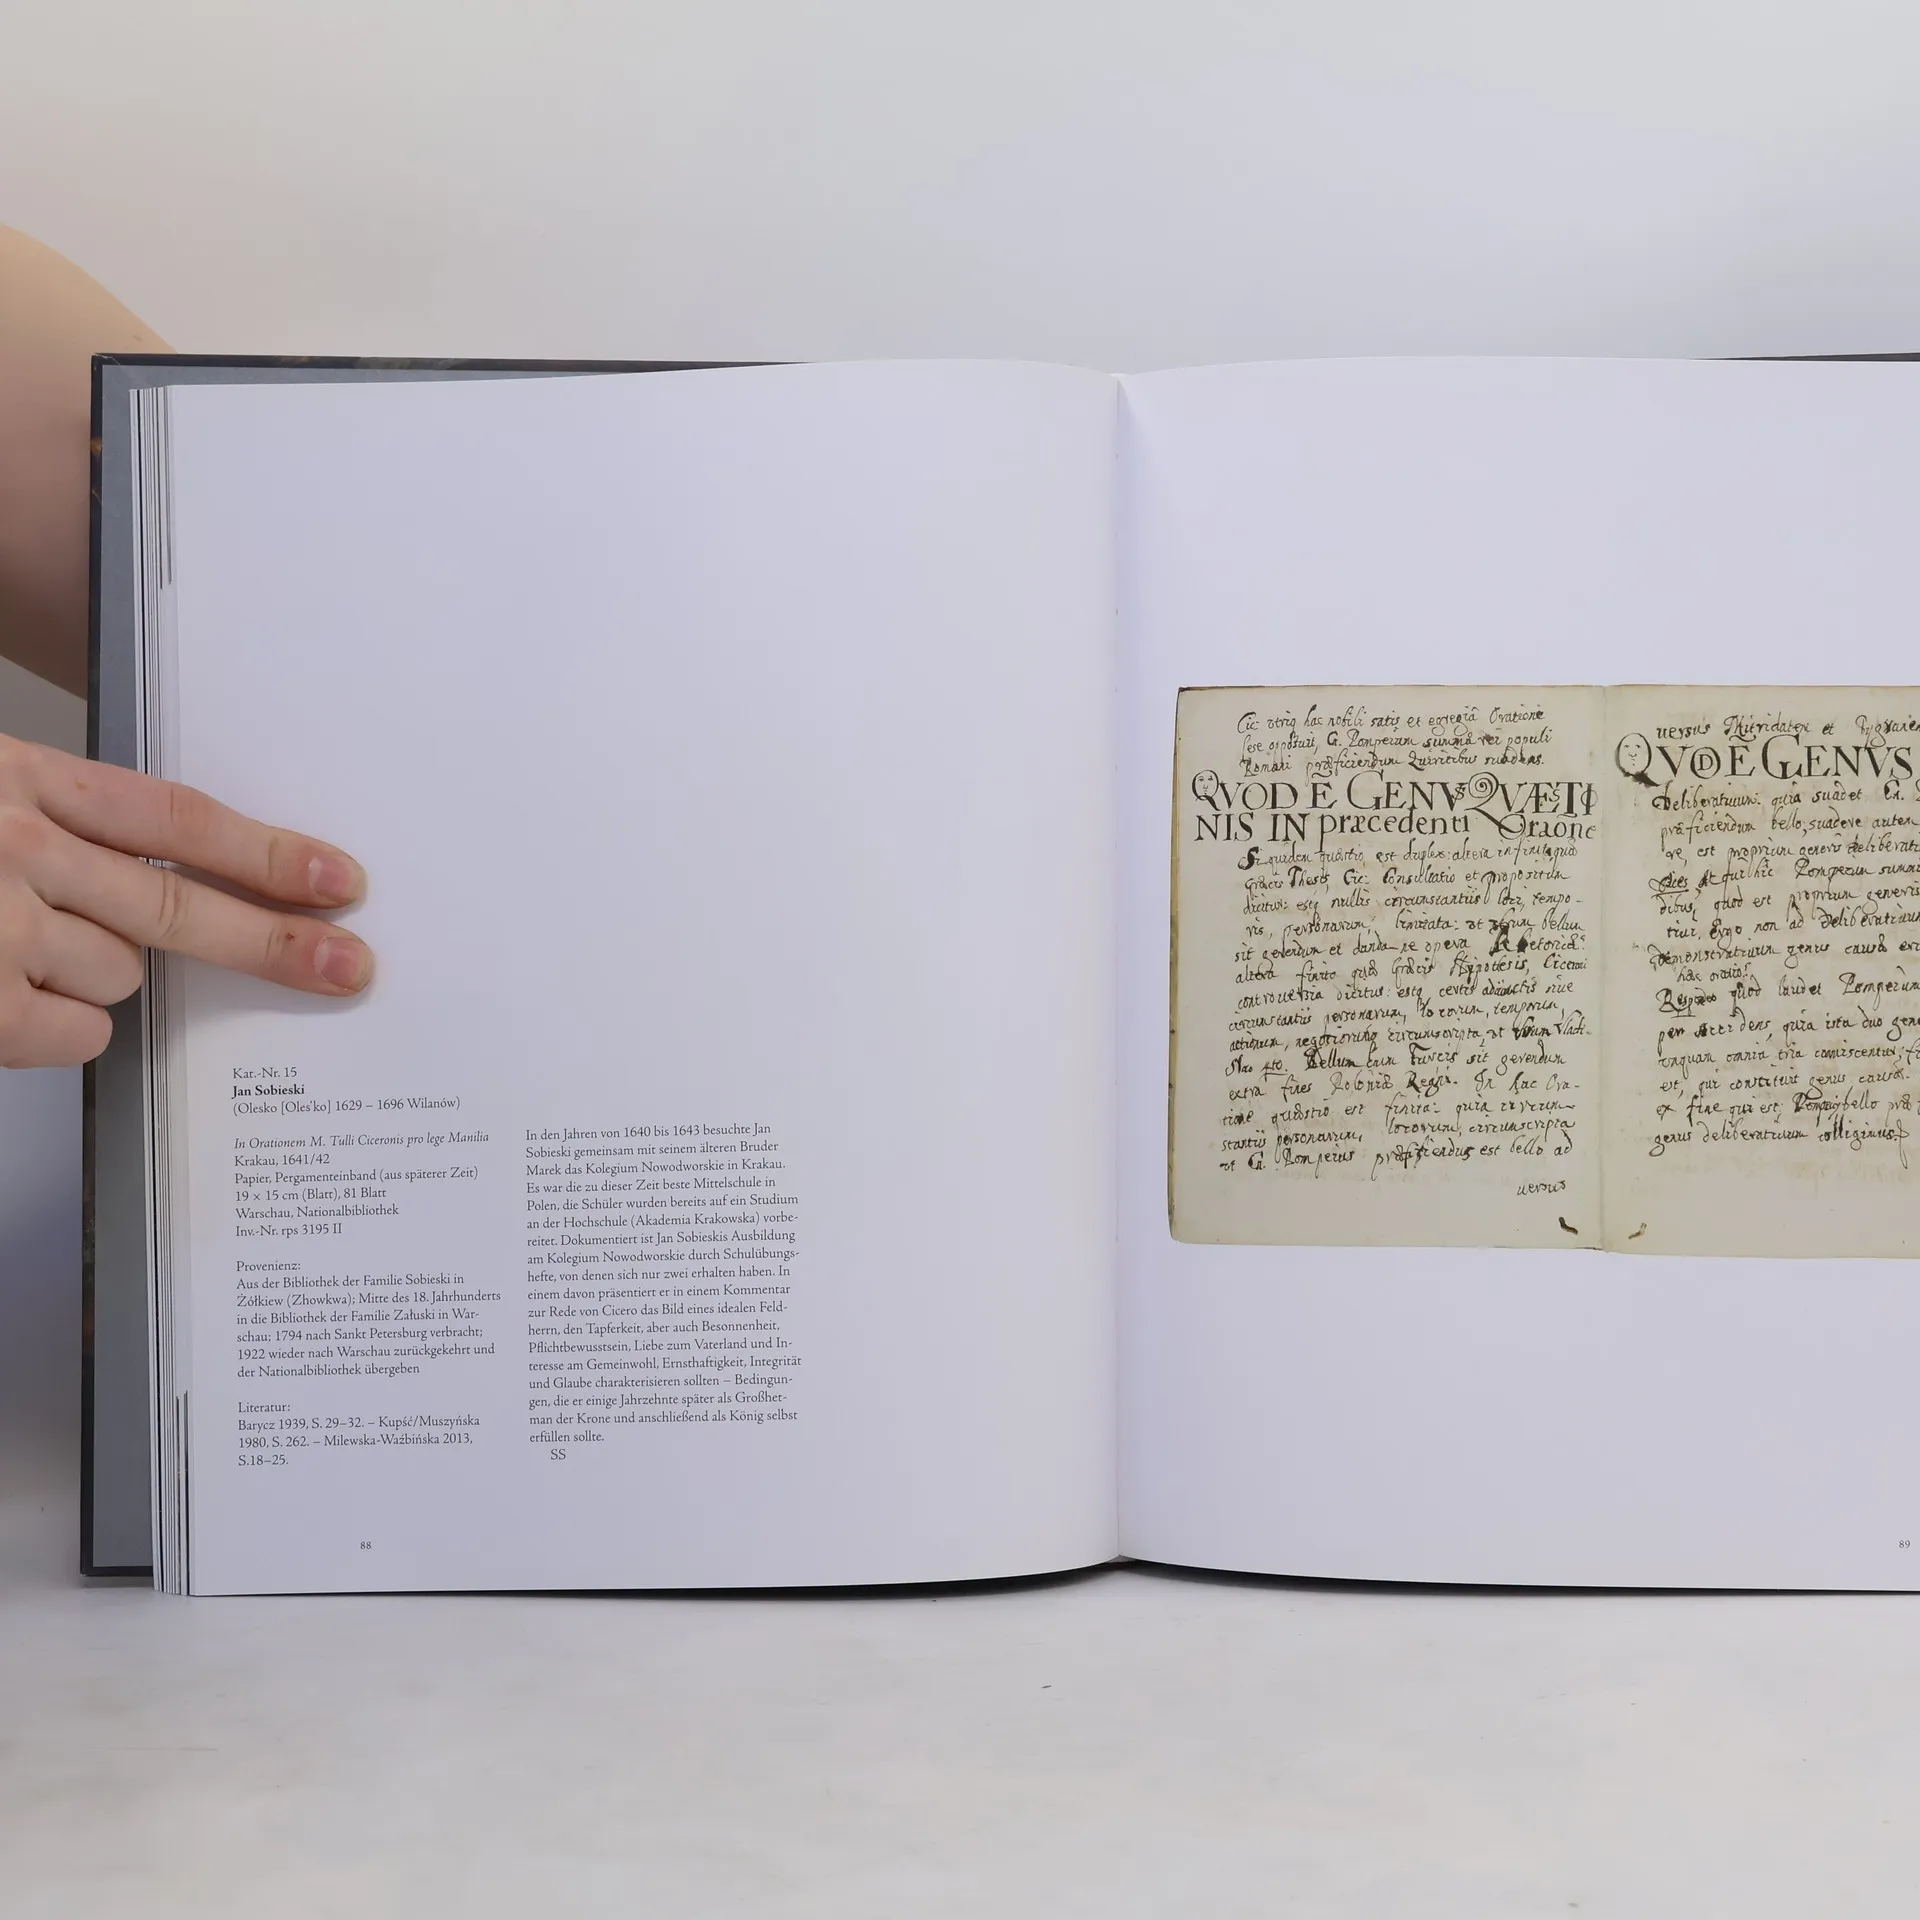 Kat.-Nr. 15
Jan Sobieski
(Olesko [Oles'ko] 1629 – 1696 Wilanów)
In Orationem M. Tulli Ciceronis pro lege Manilia
Krakau, 1641/42
Papier, Pergamenteinband (aus späterer Zeit)
19 × 15 cm (Blatt), 81 Blatt
Warschau, Nationalbibliothek
Inv.-Nr. rps 3195 II
Provenienz:
Aus der Bibliothek der Familie Sobieski in
Żółkiew (Zhowkwa); Mitte des 18. Jahrhunderts
in die Bibliothek der Familie Załuski in War-
schau; 1794 nach Sankt Petersburg verbracht;
1922 wieder nach Warschau zurückgekehrt und
der Nationalbibliothek übergeben
Literatur:
Barycz 1939, S. 29–32. – Kupść/Muszyńska
1980, S. 262. – Milewska-Waźbińska 2013,
S.18–25.
In den Jahren von 1640 bis 1643 besuchte Jan
Sobieski gemeinsam mit seinem älteren Bruder
Marek das Kolegium Nowodworskie in Krakau.
Es war die zu dieser Zeit beste Mittelschule in
Polen, die Schüler wurden bereits auf ein Studium
an der Hochschule (Akademia Krakowska) vorbe-
reitet. Dokumentiert ist Jan Sobieskis Ausbildung
am Kolegium Nowodworskie durch Schulübungs-
hefte, von denen sich nur zwei erhalten haben. In
einem davon präsentiert er in einem Kommentar
zur Rede von Cicero das Bild eines idealen Feld-
herrn, den Tapferkeit, aber auch Besonnenheit,
Pflichtbewusstsein, Liebe zum Vaterland und In-
teresse am Gemeinwohl, Ernsthaftigkeit, Integrität
und Glaube charakterisieren sollten – Bedingun-
gen, die er einige Jahrzehnte später als Großhet-
man der Krone und anschließend als König selbst
erfüllen sollte.
SS
88
Cic: utriq hac nobili satis et egregiâ Oratione
sese opposuit, G. Pompeium summâ rei populi
Romani præficiendum Quiritibus suadens.
QVOD E GENVS QVÆSTIO
NIS IN præcedenti Oraone
Si quidem quæstio est duplex: altera infinita quæ
græcis Thesis, Cic: Consultatio et propositum
dicitur: estq nullis circumstantiis loci, tempo-
ris, personarum, limitata: ut utrum bellum
sit gerendum et danda ne opera Rhetoricæ:
altera finita quæ Græcis Hypothesis, Ciceroni
controversia dicitur: estq certis adiunctis sive
circumstantiis personarum, locorum, temporum,
actionum, negotiorumq circumscripta, ut utrum Vladi-
slao 4to. Bellum cum Turcis sit gerendum
extra fines Poloniæ Regni. In hac Ora-
tione quæstio est finita: quia circum-
stantiis personarum, locorum, circumscripta
ut Cn. Pompeius præficiendus est bello ad
versus
versus Mitridatem et
QVOD E GENVS
Deliberativum: quia suadet Cn.
præficiendum bello, suadere autem
re, est proprium generis deliberati
Dices At qui hic Pompeium summi
dibus, quod est proprium generis
tivi, Ergo non ad Deliberativum
Demonstrativum genus causæ
hæc oratio?
Respondeo quod laudet Pompeium
per accidens, quia ista duo gene
unquam omnia tria comiscentur,
est, qui constituit genus causæ.
ex fine qui est, Pompeiū bello præ
genus deliberativum colligimus.
89